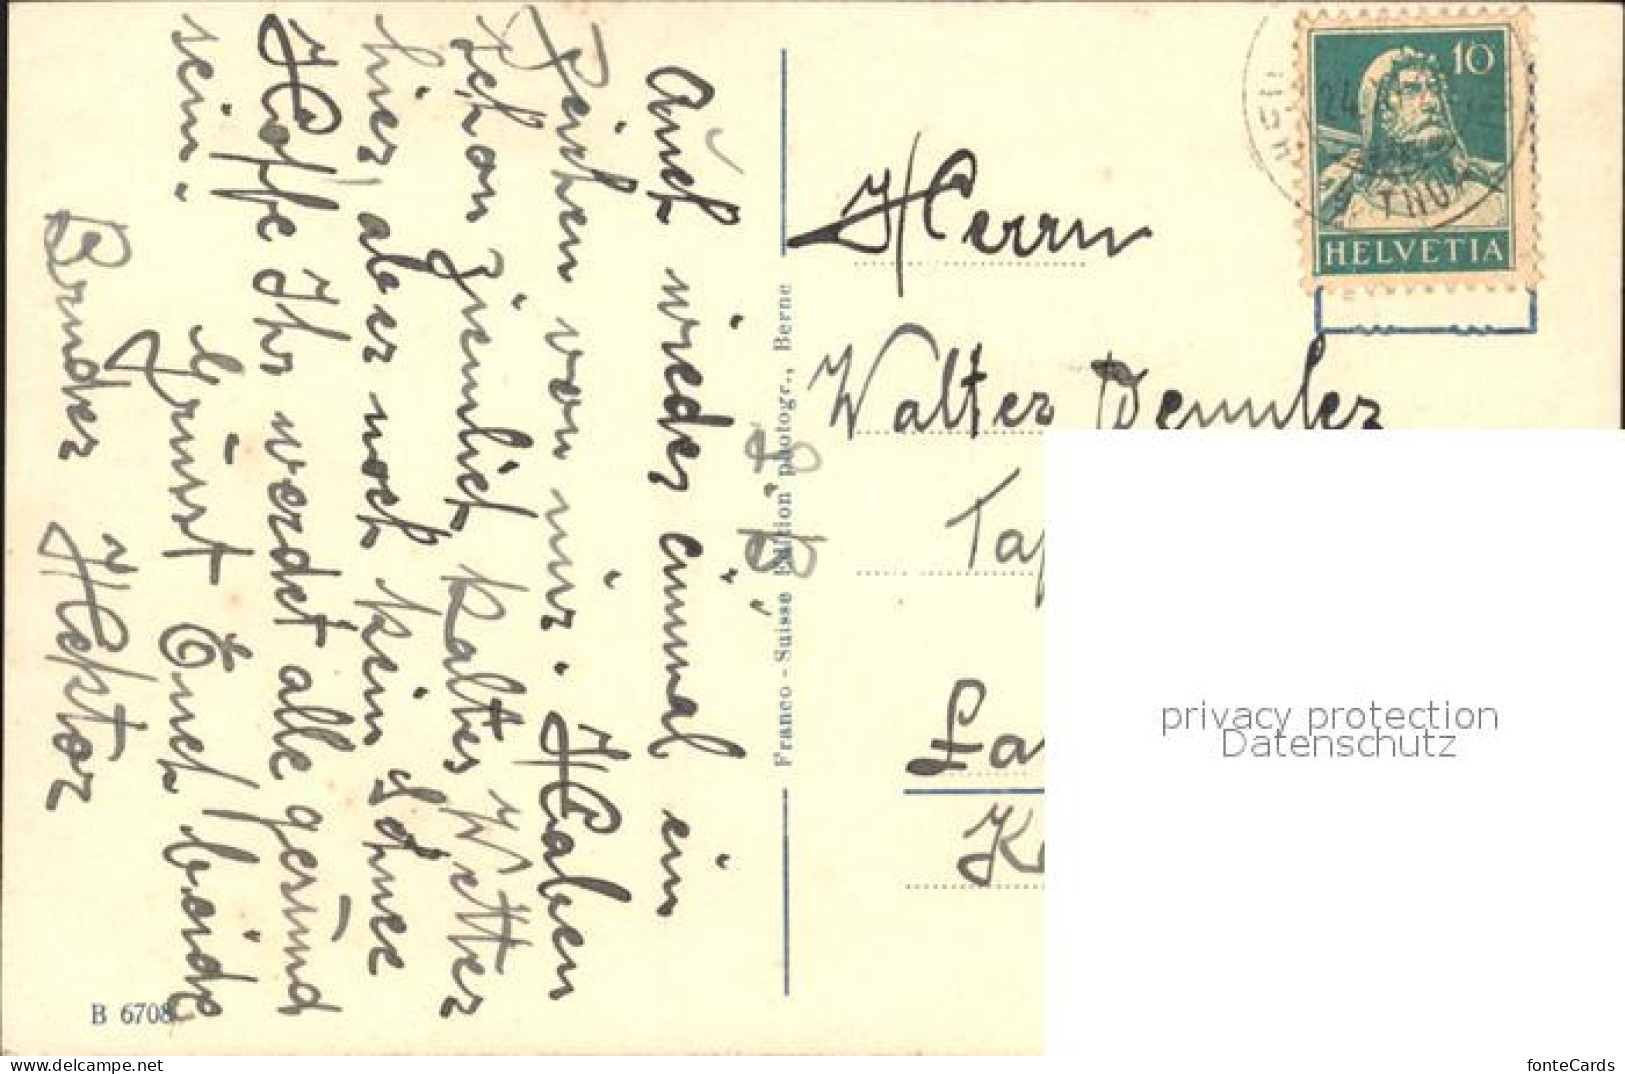 Auch wieder einmal ein
Zeichen von mir. Haben
schon ziemlich kaltes Wetter
hier, aber noch kein Schnee
Hoffe Ihr werdet alle gesund
sein.
Grüsst Euch beide
Bruder Hektor
Franco - Suisse Edition photogr., Berne
B 6708
10
HELVETIA
24
THUN
Herrn
Walter
privacy protection
Datenschutz
fonteCards